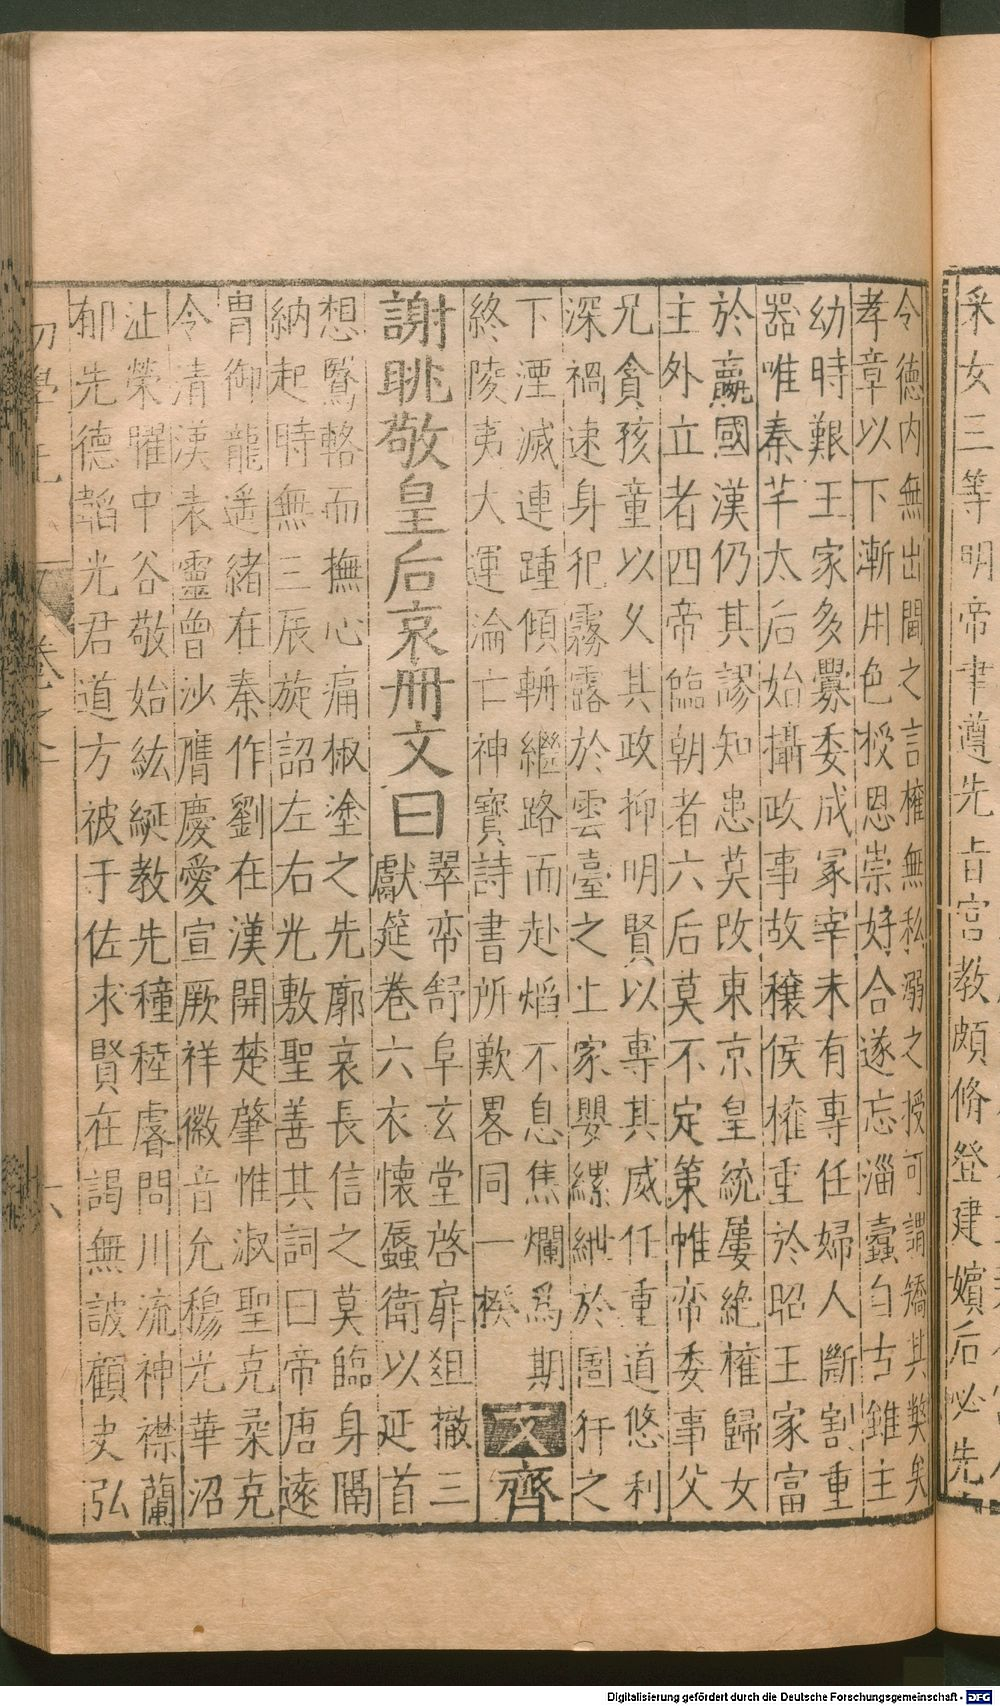 采女三等明帝聿遵先旨宮教頗脩登建嬪后必先
令德内無出閫之言權無私溺之授可謂矯其獘矣
孝章以下漸用色授恩崇好合遂忘淄蠹自古雖主
幼時艱王家多釁委成冢宰未有專任婦人斷割重
器唯秦芊太后始攝政事故穰侯權重於昭王家富
於嬴國漢仍其謬知患莫改東京皇統屢絶權歸女
主外立者四帝臨朝者六后莫不定策帷帟委事父
兄貪孩童以久其政抑明賢以專其威任重道悠利
深禍速身犯霧露於雲臺之上家嬰縲紲於圄犴之
下湮滅連踵傾輈繼路而赴熖不息焦爛爲期
終陵夷大運淪亡神寳詩書所歎畧同一揆 文 齊
謝朓敬皇后哀冊文曰
翠帟舒阜玄堂啓扉俎撤三
獻筵卷六衣懷蜃衛以延首
想鷖輅而撫心痛椒塗之先廓哀長信之莫臨身隔
納起時無三辰旋詔左右光敷聖善其詞曰帝唐遠
胄御龍遥緒在秦作劉在漢開楚肇惟淑聖克柔克
令清漢表靈曾沙膺慶愛宣厥祥徽音允穆光華沼
沚榮曜中谷敬始紘綖教先穜稑睿問川流神襟蘭
郁先德韜光君道方被于佐求賢在謁無詖顧史弘
Digitalisierung gefördert durch die Deutsche Forschungsgemeinschaft - DFG